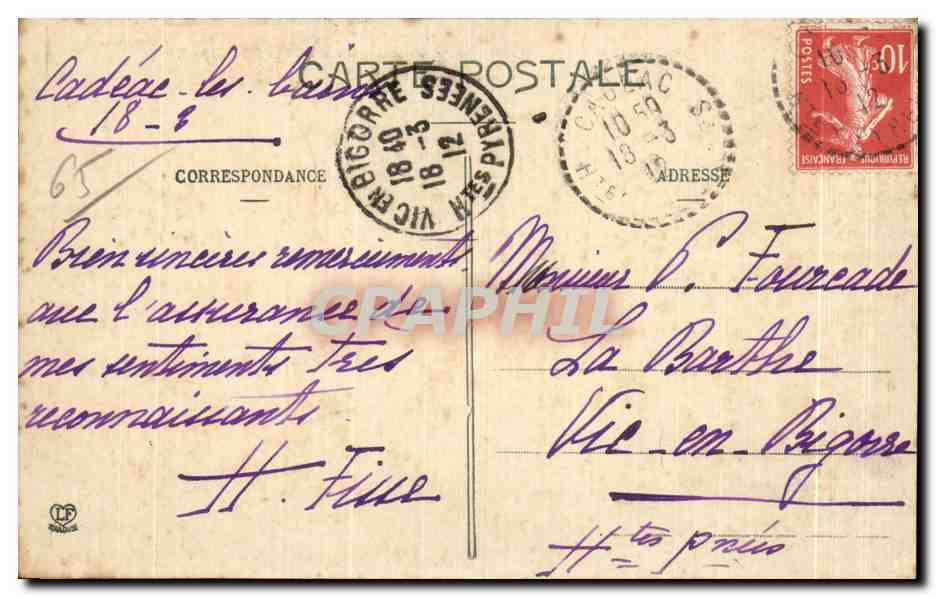 CARTE POSTALE
Cadéac-les-bains
18-3
65
CORRESPONDANCE
ADRESSE
VIC EN BIGORRE
18 40
18 -3
12
Htes PYRENEES
10 50
18 -3
10c
POSTES
REPUBLIQUE FRANÇAISE
Bien sincères remerciements
avec l'assurance de
mes sentiments très
reconnaissants
H.
Monsieur P. Fourcade
La Barthe
Vic-en-Bigorre
Htes pnées
CPAPHIL
LF
TOULOUSE